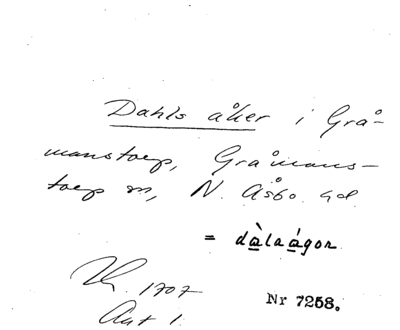 Dahls åker i Grå-
manstorp, Gråmans-
torp sn, N. Åsbo hd
= dàlaágor
1707
Nr 7258.
Ant 1.